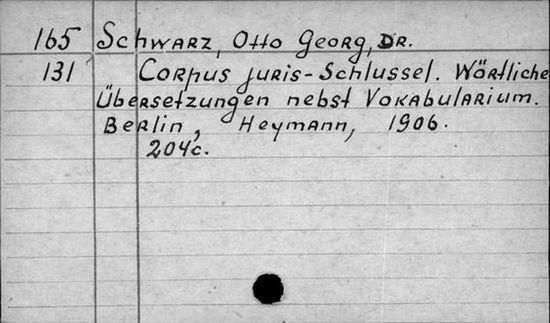 165 Schwarz, Otto Georg, Dr.
131 Corpus juris-Schlussel. Wörtliche
Übersetzungen nebst Vokabularium.
Berlin, Heymann, 1906.
204c.